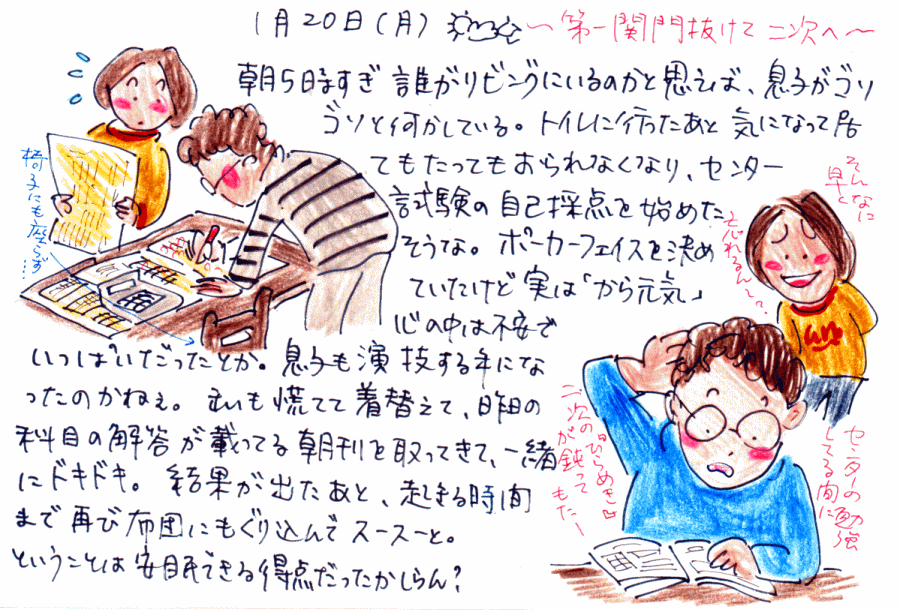 1月20日(月) 〜第一関門抜けて二次へ〜
朝5時すぎ 誰がリビングにいるのかと思えば、息子がゴソ
ゴソと何かしている。トイレに行ったあと 気になって居
てもたってもおられなくなり、センター
試験の自己採点を始めた
そうな。ポーカーフェイスを決め
ていたけど 実は「から元気」
心の中は不安で
いっぱいだったとか。息子も演技する年にな
ったのかねぇ。私も慌てて着替えて、昨日の
科目の解答が載ってる朝刊を取ってきて、一緒
にドキドキ。結果が出たあと、起きる時間
まで再び布団にもぐり込んでスースーと。
ということは安眠できる得点だったかしらん?
椅子にも座らず…
そんなに
早く
忘れるん
センターの勉強
してる間に
二次のひらめき
が鈍って
もたー